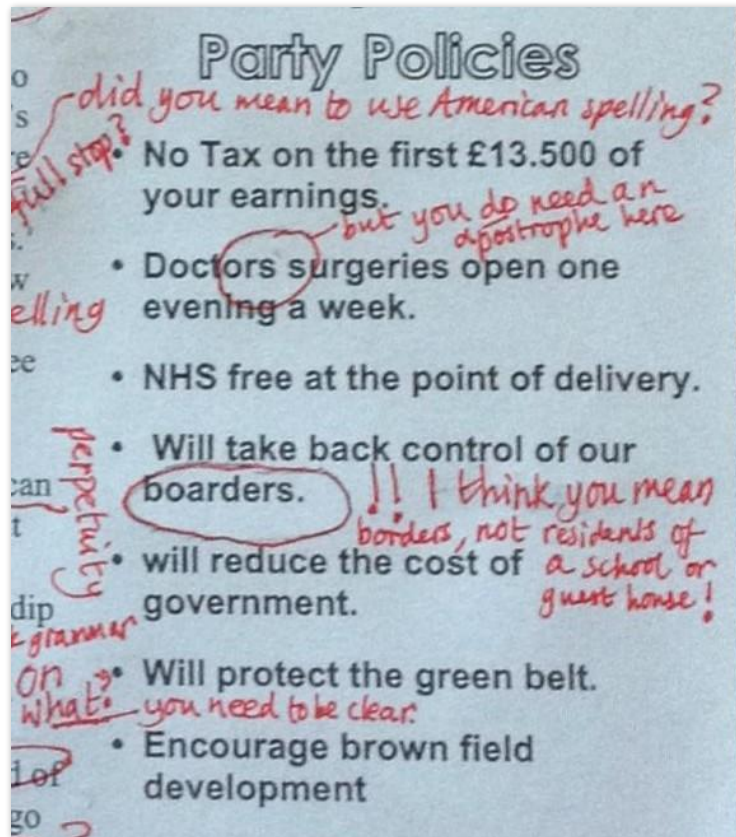 Party Policies
o
did you mean to use American spelling?
s
re
full stop?
• No Tax on the first £13.500 of
your earnings.
but you do need an
apostrophe here
s.
w
• Doctors surgeries open one
elling
evening a week.
ee
• NHS free at the point of delivery.
perpetuity
• Will take back control of our
can
boarders.
!! I think you mean
borders, not residents of
a school or
guest house!
t
• will reduce the cost of
government.
dip
grammar
on
what?
you need to be clear.
• Will protect the green belt.
• Encourage brown field
development
d of
go
?